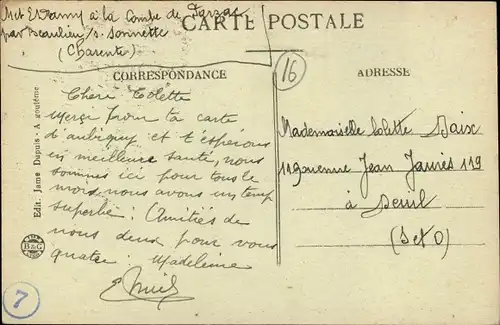 à la Combe de
CARTE POSTALE
par Beaulieu s. Sonnette
(Charente)
16
CORRESPONDANCE
ADRESSE
Chère Colette
Merci pour ta carte
d'aubigny et t'espérons
en meilleure santé, nous
sommes ici pour tous le
mois nous avons un temps
superbe: Amitiés de
nous deux pour vous
quatre. Madeleine
Mademoiselle Colette Daix
119 avenue Jean Jaurès 119
à Deuil
(S et O)
Edit. Jame Dupuis - Angoulême
B&G
7